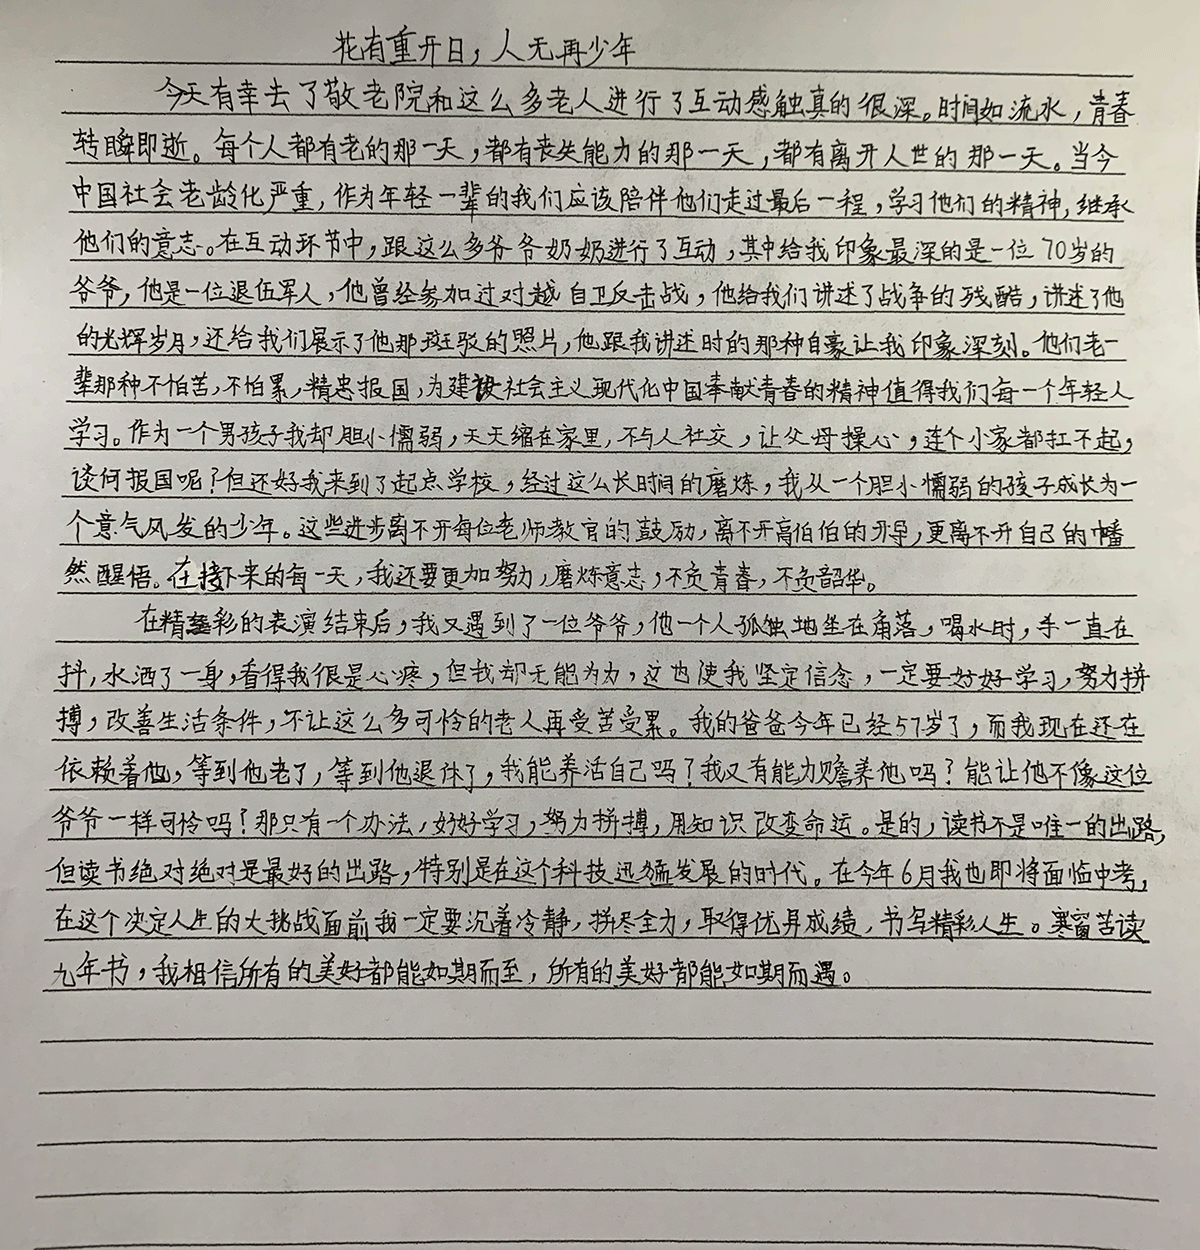 花有重开日，人无再少年
今天有幸去了敬老院和这么多老人进行了互动感触真的很深。时间如流水，青春
转瞬即逝。每个人都有老的那一天，都有丧失能力的那一天，都有离开人世的那一天。当今
中国社会老龄化严重，作为年轻一辈的我们应该陪伴他们走过最后一程，学习他们的精神，继承
他们的意志。在互动环节中，跟这么多爷爷奶奶进行了互动，其中给我印象最深的是一位70岁的
爷爷，他是一位退伍军人，他曾经参加过对越自卫反击战，他给我们讲述了战争的残酷，讲述了他
的光辉岁月，还给我们展示了他那斑驳的照片，他跟我讲述时的那种自豪让我印象深刻。他们老一
辈那种不怕苦，不怕累，精忠报国，为建设社会主义现代化中国奉献青春的精神值得我们每一个年轻人
学习。作为一个男孩子我却胆小懦弱，天天缩在家里，不与人社交，让父母操心，连个小家都扛不起，
谈何报国呢？但还好我来到了起点学校，经过这么长时间的磨炼，我从一个胆小懦弱的孩子成长为一
个意气风发的少年。这些进步离不开每位老师教官的鼓励，离不开高伯伯的引导，更离不开自己的幡
然醒悟。在接下来的每一天，我还要更加努力，磨炼意志，不负青春，不负韶华。
在精彩的表演结束后，我又遇到了一位爷爷，他一个人孤独地坐在角落，喝水时，手一直在
抖，水洒了一身，看得我很是心疼，但我却无能为力，这也使我坚定信念，一定要好好学习，努力拼
搏，改善生活条件，不让这么多可怜的老人再受苦受累。我的爸爸今年已经57岁了，而我现在还在
依赖着他，等到他老了，等到他退休了，我能养活自己吗？我又有能力赡养他吗？能让他不像这位
爷爷一样可怜吗？那只有一个办法，好好学习，努力拼搏，用知识改变命运。是的，读书不是唯一的出路，
但读书绝对绝对是最好的出路，特别是在这个科技迅猛发展的时代。在今年6月我也即将面临中考，
在这个决定人生的大挑战面前我一定要沉着冷静，拼尽全力，取得优异成绩，书写精彩人生。寒窗苦读
九年书，我相信所有的美好都能如期而至，所有的美好都能如期而遇。